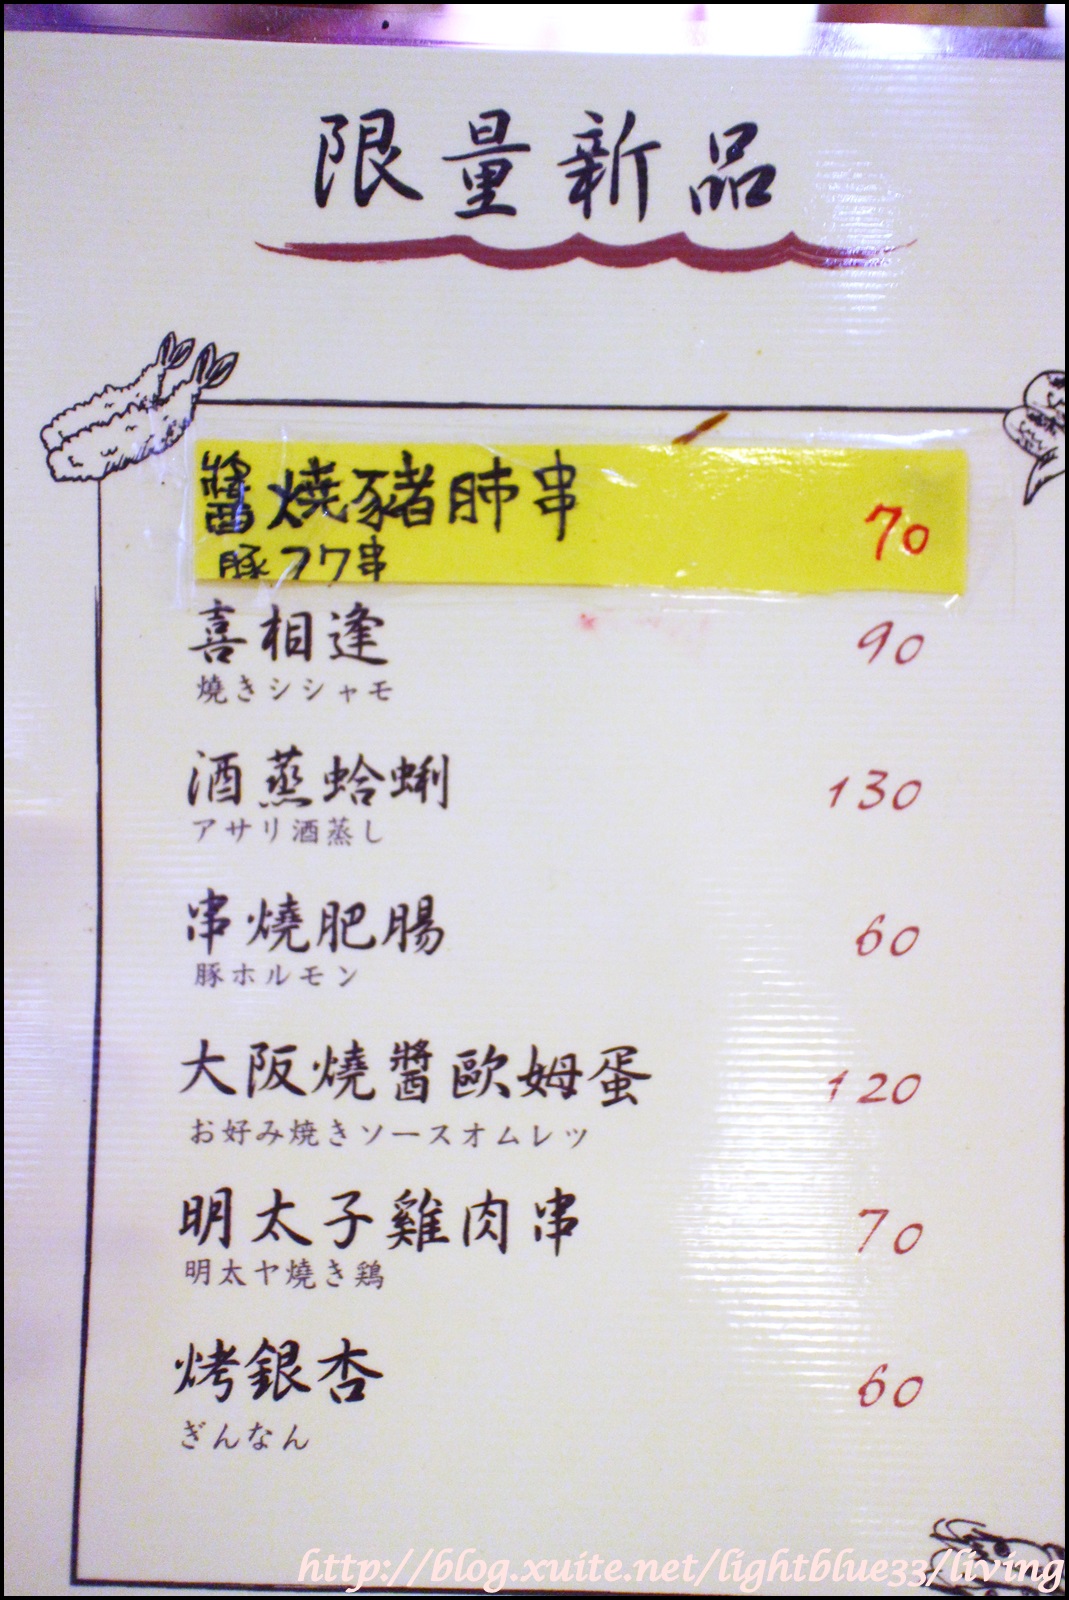 限量新品
醬燒豬肺串 70
豚フワ串
喜相逢 90
燒きシシャモ
酒蒸蛤蜊 130
アサリ酒蒸し
串燒肥腸 60
豚ホルモン
大阪燒醬歐姆蛋 120
お好み焼きソースオムレツ
明太子雞肉串 70
明太ヤ燒き鶏
烤銀杏 60
ぎんなん
http://blog.xuite.net/lightblue33/living